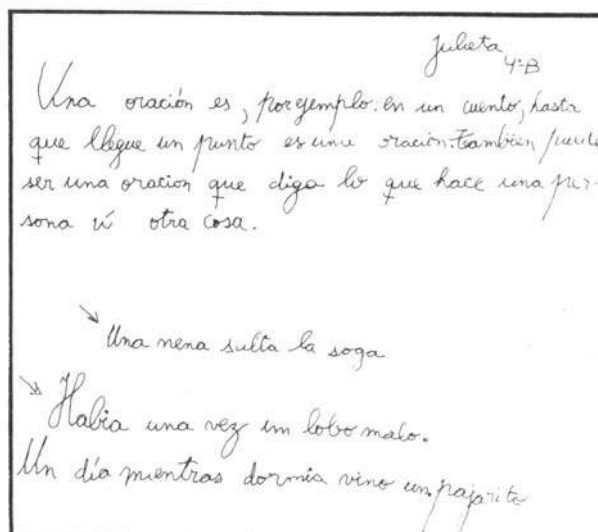 Julieta
4°B
Una oración es, por ejemplo. en un cuento, hasta
que llegue un punto es una oración. También puede
ser una oracion que diga lo que hace una per-
sona ú otra cosa.
Una nena sulta la soga
Habia una vez un lobo malo.
Un día mientras dormia vino un pajarito